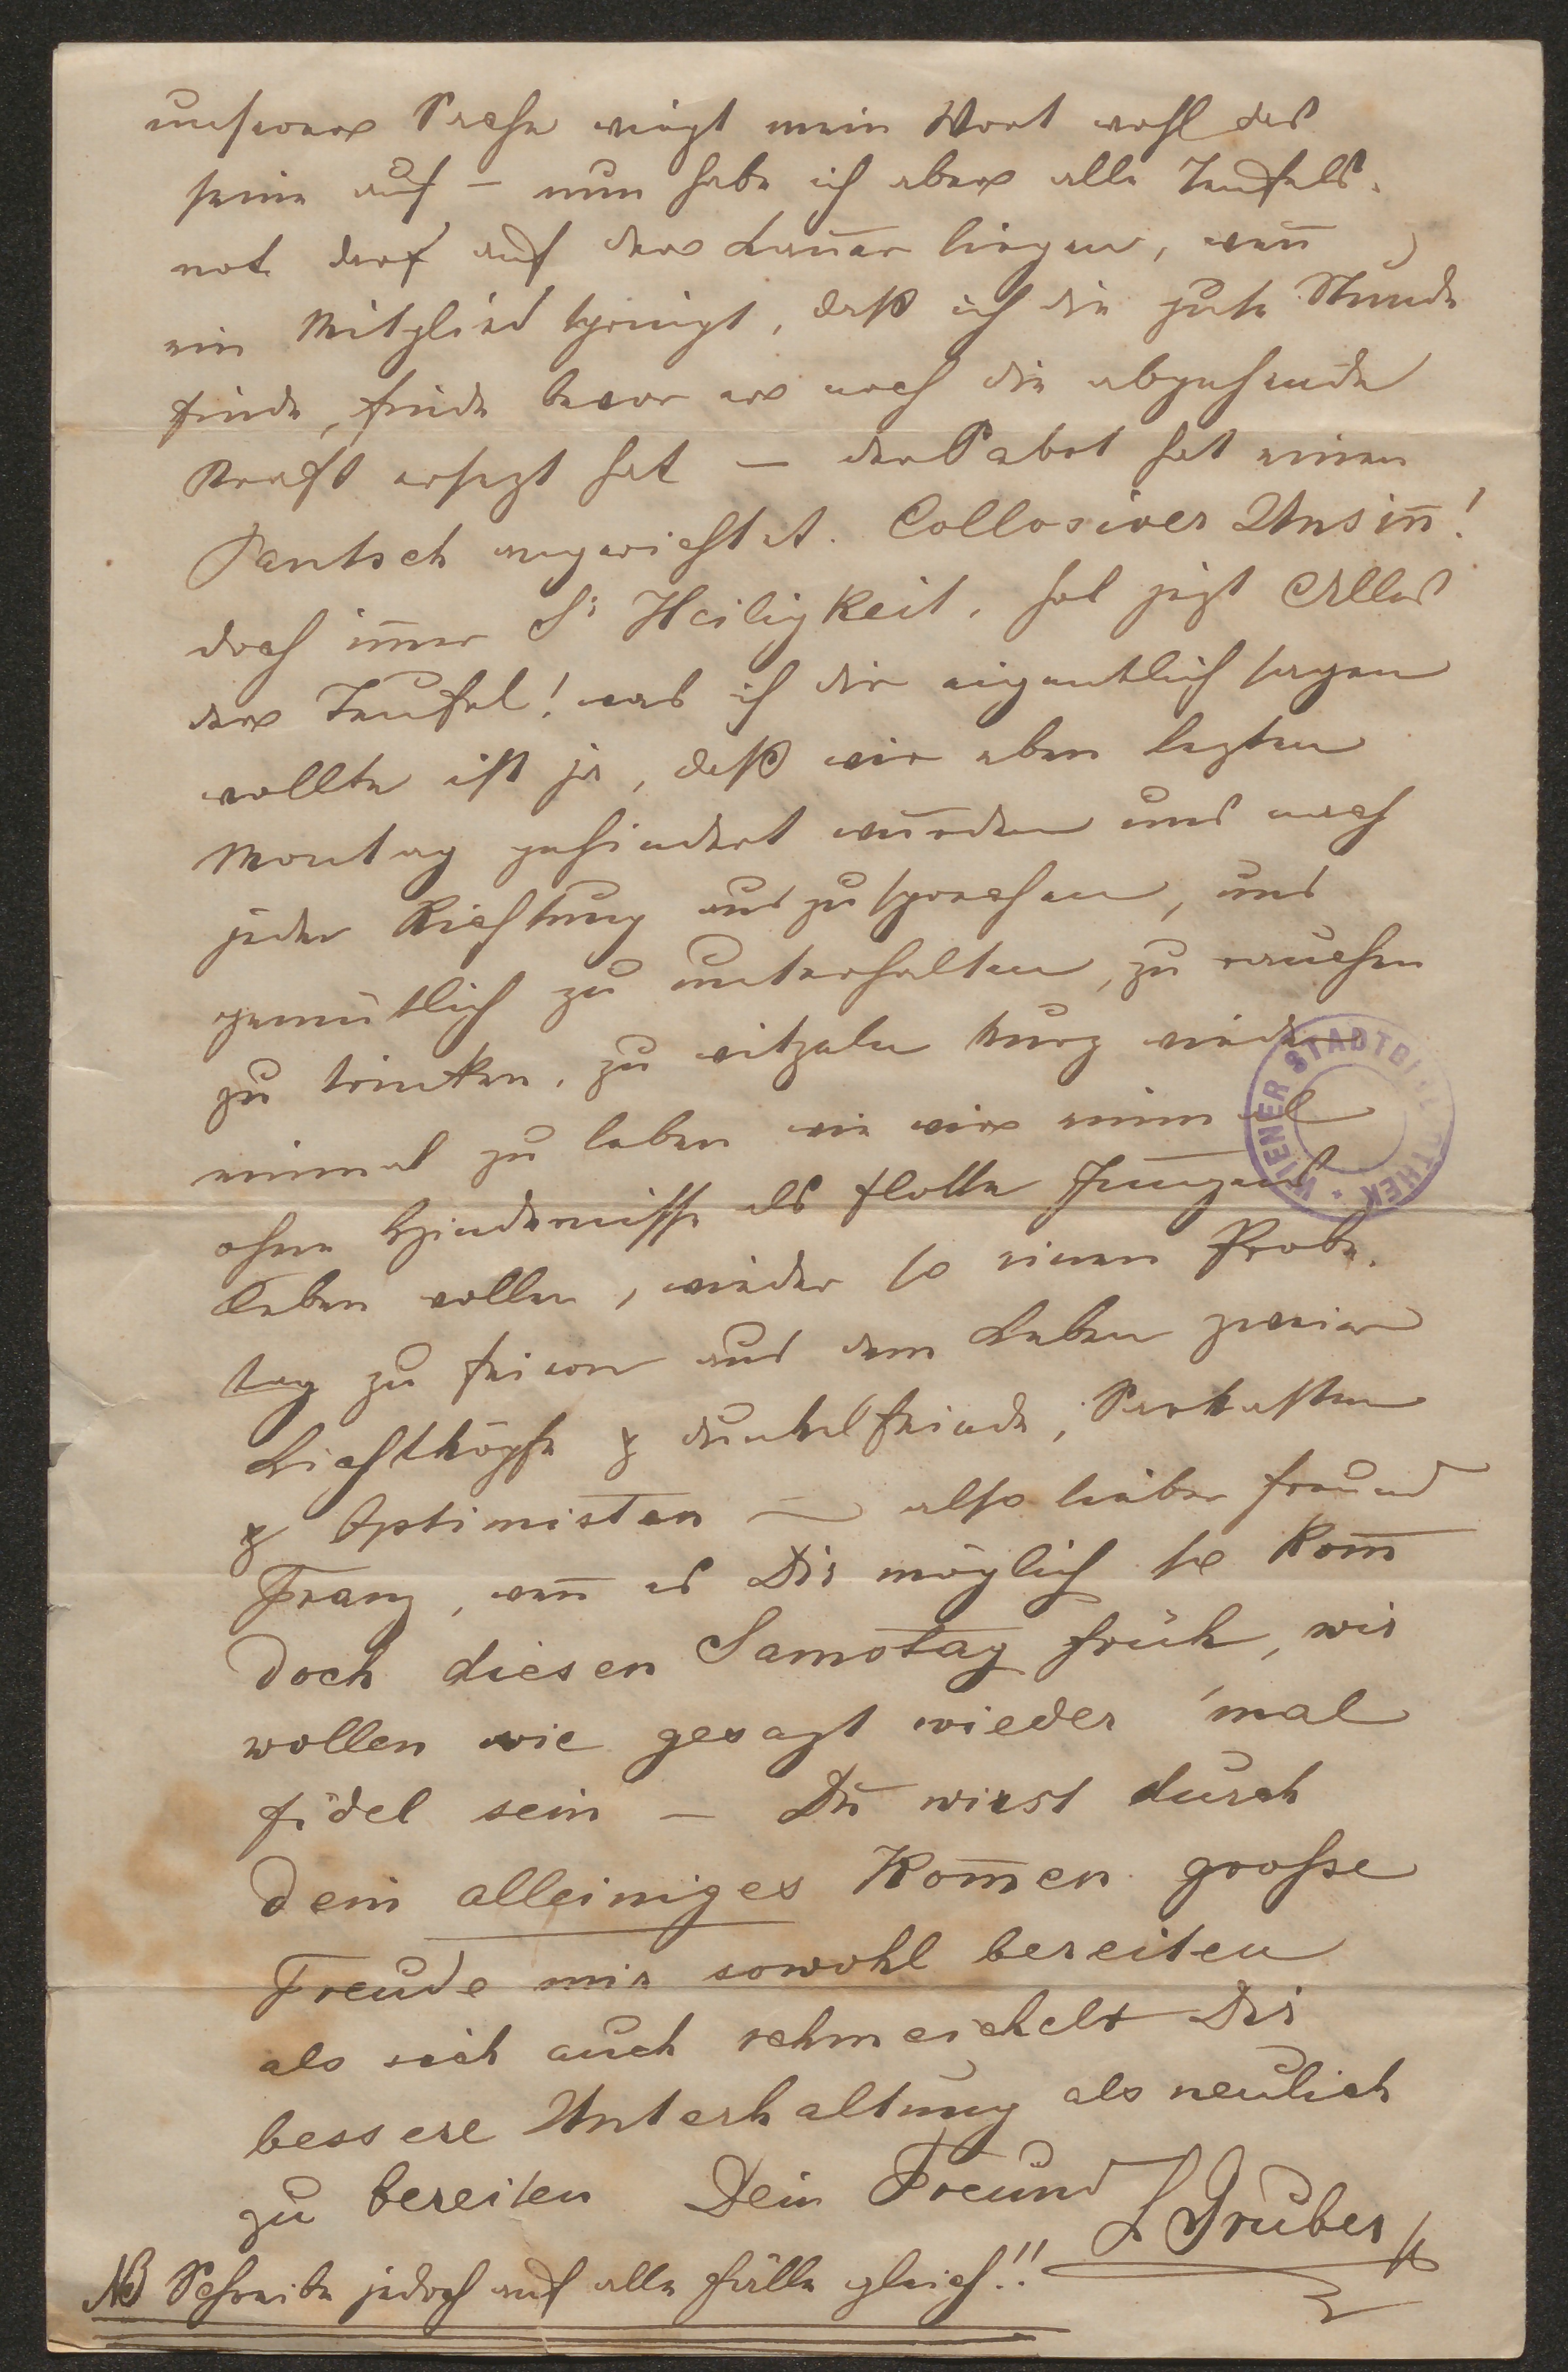 unserer Sache wiegt mein Wort wohl das
seine auf – nun habe ich aber alle Teufels-
not darf auf der Lauer liegen, weñ
ein Mitglied springt, daß ich die gute Stunde
finde, finde bevor er noch die abgehende
Kraft ersezt hat – der Pabst hat einen
Pantsch angerichtet. Collosiver Unsiñ!
doch im̄er Sr Heiligkeit. hol jezt Alles
der Teufel! was ich dir eigentlich sagen
wollte ist ja, daß wir eben lezten
Montag gehindert wurden uns nach
jeder Richtung auszusprechen, uns
gemütlich zu unterhalten, zu rauchen
zu trinken, zu witzeln kurz wieder
einmal zu leben wie wir einmal
ohne Hindernisse als flotte Jungens
leben wollen, wieder so einen Probe-
tag zu feiern aus dem Leben zweier
Lichtköpfe & dunkelfeinde, Sarkasten
& Optimisten – also lieber Freund
Franz, weñ es Dir möglich so kom̄
doch diesen Samstag früh, wir
wollen wie gesagt wieder 'mal
fidel sein – Du wirst durch
dein alleiniges Kom̄en große
Freude mir sowohl bereiten
als sich auch schmeichelt Dir
bessere Unterhaltung als neulich
zu bereiten Dein Freund L Gruber
NB Schreibe jedoch auf alle Fälle gleich!!
WIENER STADTBIBLIOTHEK